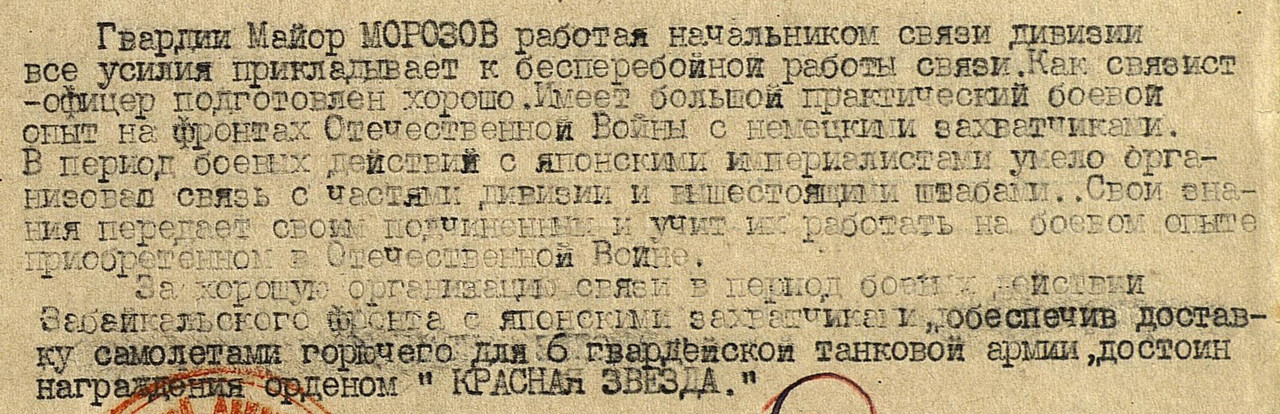 Гвардии Майор МОРОЗОВ работая начальником связи дивизии
все усилия прикладывает к бесперебойной работы связи.Как связист
-офицер подготовлен хорошо.Имеет большой практический боевой
опыт на фронтах Отечественной Войны с немецкими захватчиками.
В период боевых действий с японскими империалистами умело орга-
низовал связь с частями дивизии и вышестоящими штабами..Свои зна-
ния передает своим подчиненным и учит их работать на боевом опыте
приобретенном в Отечественной Войне.
За хорошую организацию связи в период боевых действий
Забайкальского фронта с японскими захватчиками,,обеспечив достав-
ку самолетами горючего для 6 гвардейской танковой армии,достоин
награждения орденом " КРАСНАЯ ЗВЕЗДА."